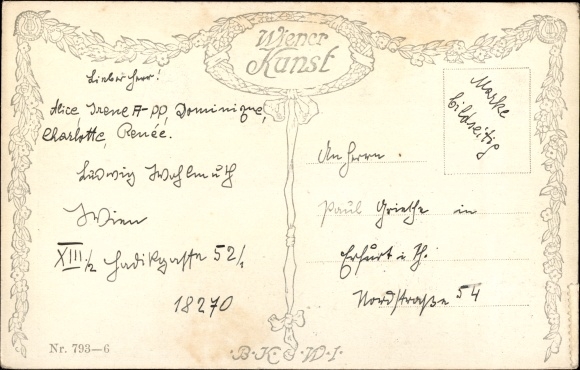 Wiener
Kunst
Lieber Herr!
Alice, Irene A-pp, Dominique,
Charlotte, Renée.
Ludwig Wohlmuth
Wien
XIII/2 Hadikgasse 52/1
18270
Marke
bildseitig
An Herrn
Paul Griethe in
Erfurt i. Th.
Nordstraße 54
Nr. 793—6
B.K.W.I.